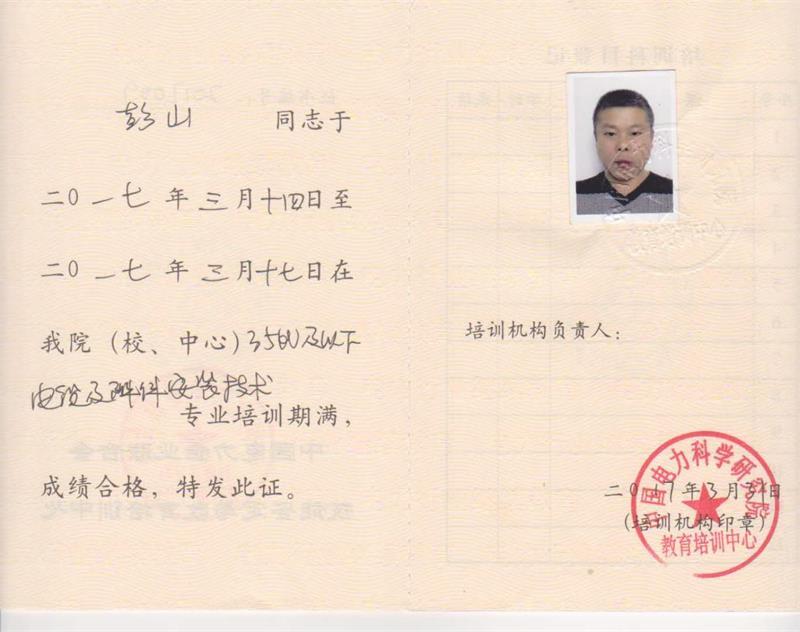 彭山 同志于
二〇一七年三月十四日至
二〇一七年三月十七日在
我院（校、中心）35kV及以下
电缆及附件安装技术
专业培训期满，
成绩合格，特发此证。
培训机构负责人：
二〇一七年3月31日
（培训机构印章）
中国电力科学研究院
教育培训中心